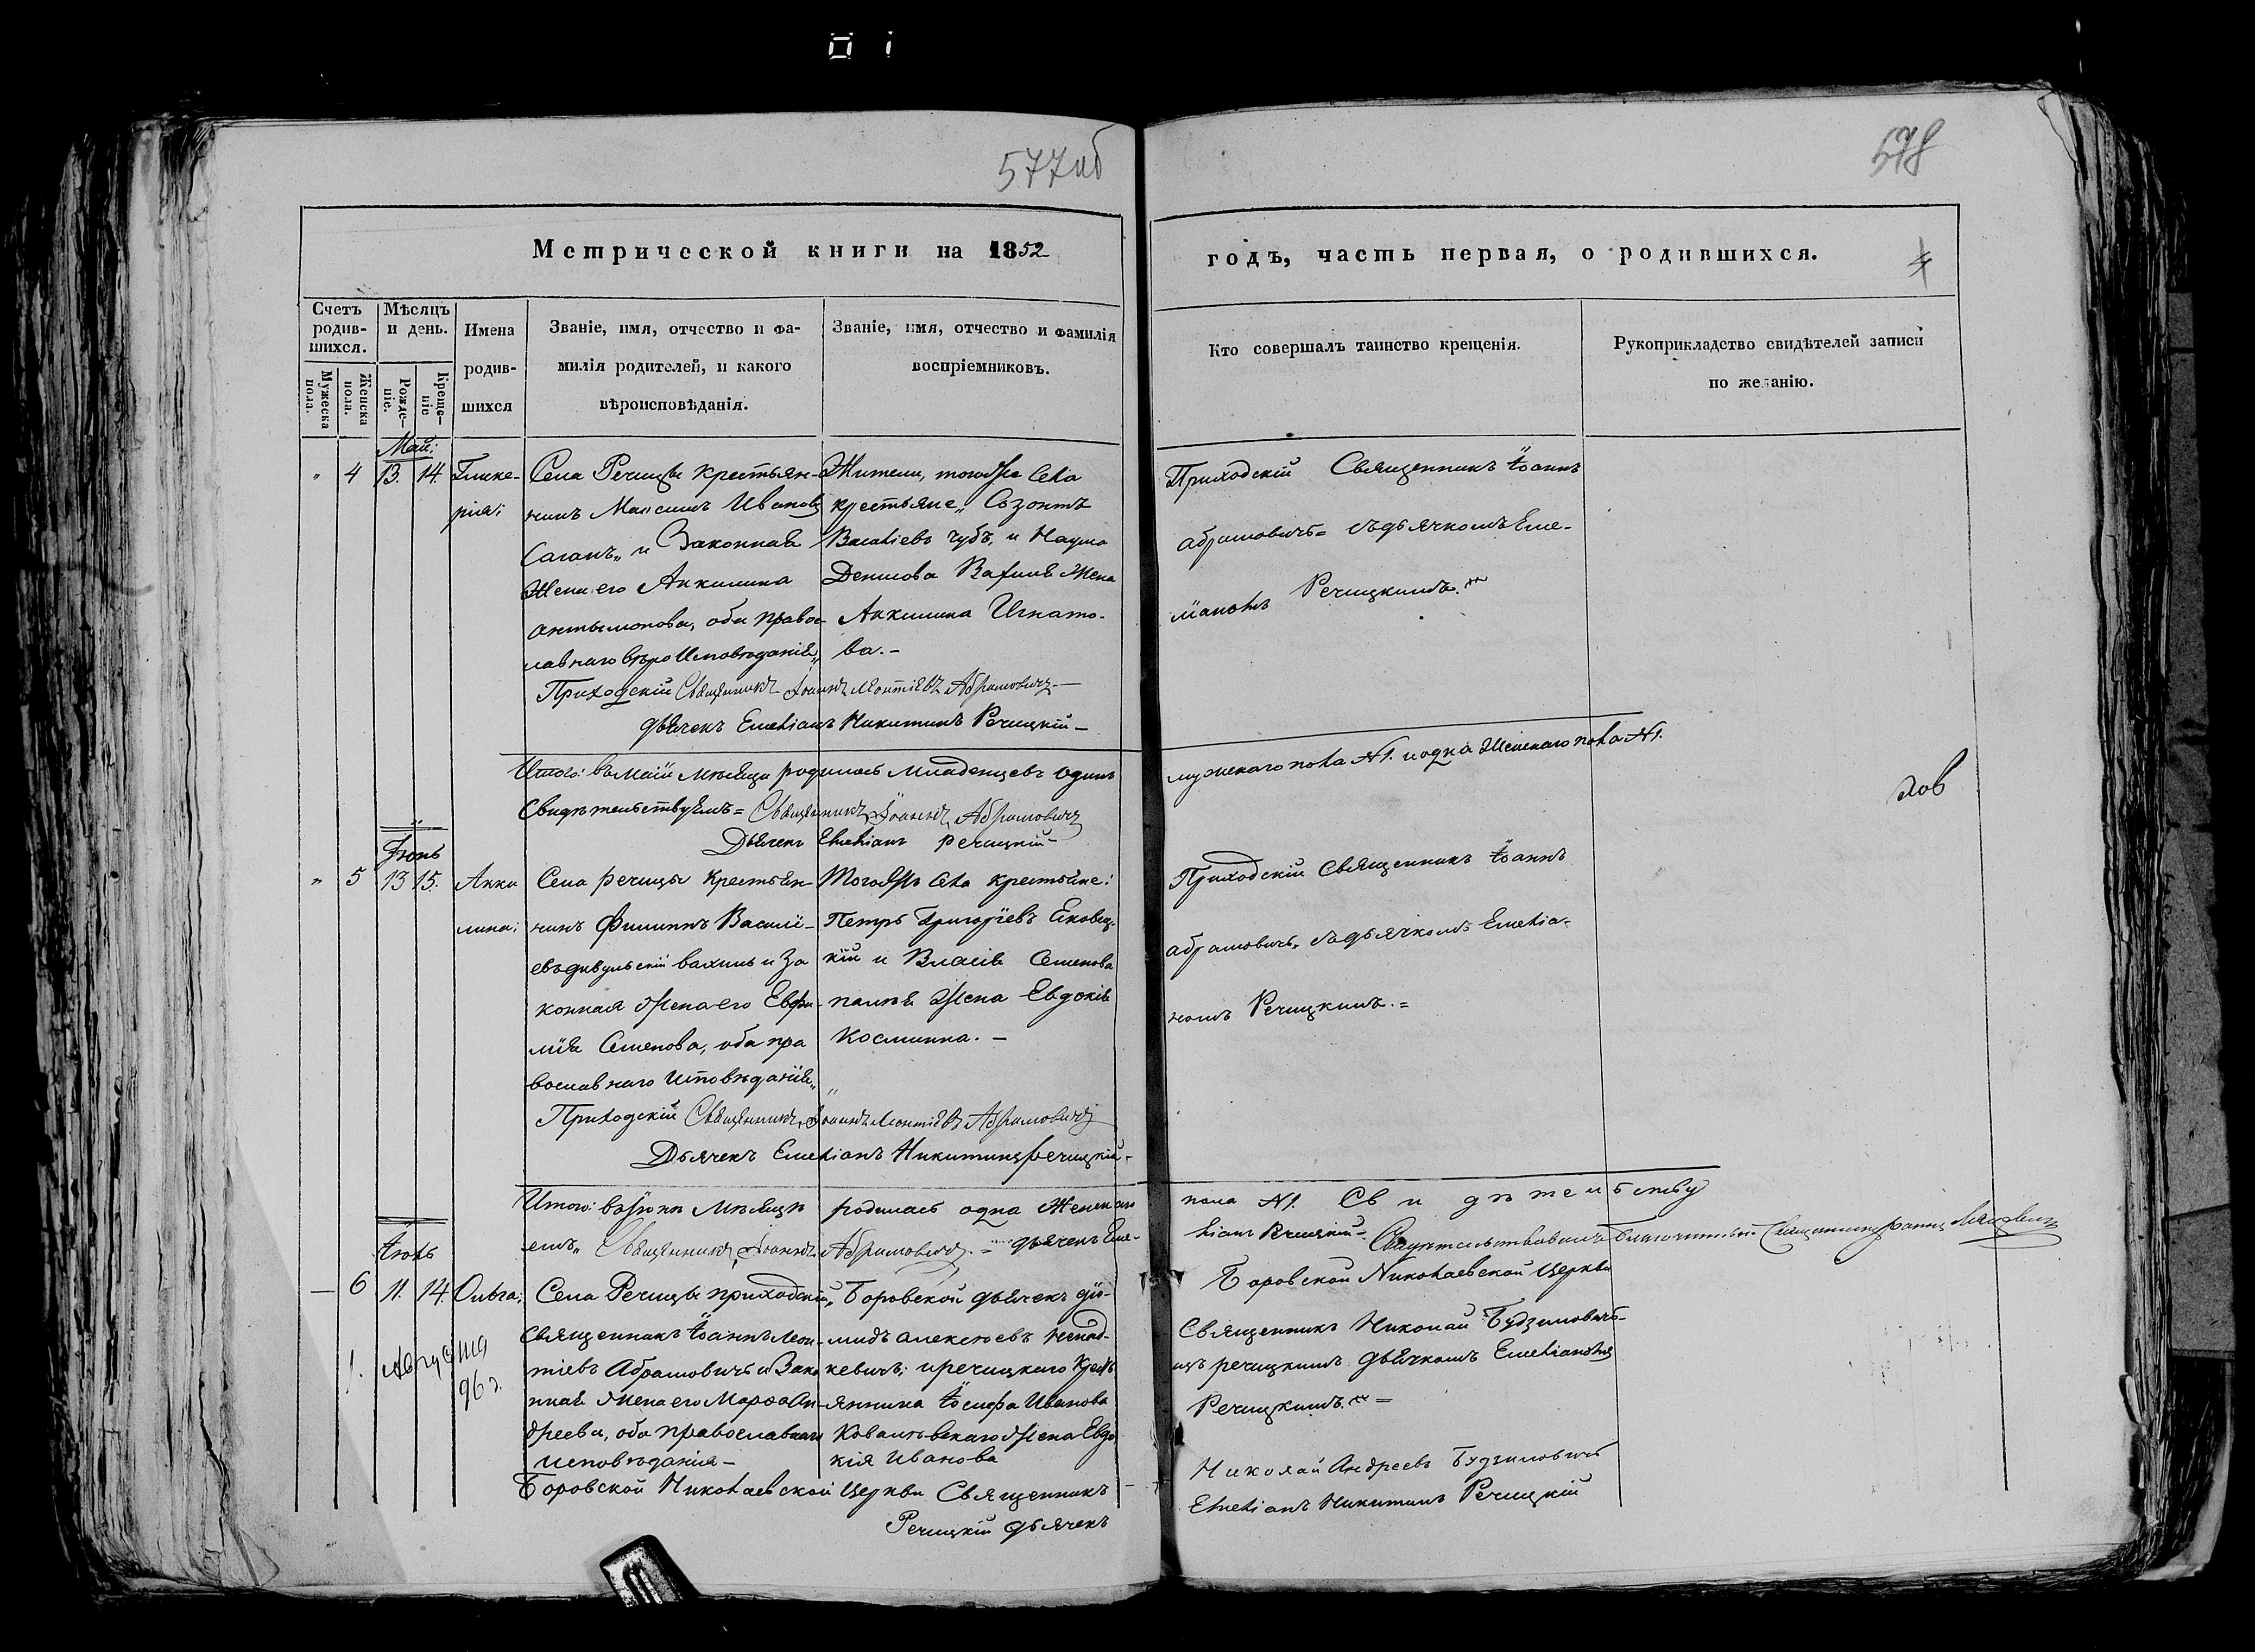 577 об
578
Метрической книги на 1852
годъ, часть первая, о родившихся.
4
Счетъ родив-шихся.
Мѣсяцъ и день.
Имена родив-шихся
Званіе, имя, отчество и фа-
милія родителей, и какого
вѣроисповѣданія.
Званіе, имя, отчество и фамилія
воспріемниковъ.
Кто совершалъ таинство крещенія.
Рукоприкладство свидѣтелей записи
по желанію.
Мужеска пола.
Женска пола.
Рожде-ніе.
Креще-ніе
Май:
" 4 13. 14. Глике-
рія;
Села Речицы крестьян-
нинъ Максимъ Ивановъ
Саганъ, и Законная
Жена его Аккилина
Антымонова, оба право-
славнаго вѣроисповѣданія,,
Жители, тогожъ села
крестьяне,, Созонтъ
Василіевъ Чубъ, и Наума
Денисова Жена
Аккилина Игнато-
ва.-
Приходскій Священникъ Іоаннъ
Абрамовичъ= съ дьячкомъ Еме-
ліаномъ Речицкимъ.
Приходскій Священникъ Іоаннъ Леонтіевъ Абрамовичъ.-
Дьячекъ Емеліанъ Никитинъ Речицкій-
Итого: въ Маіи мѣсяцѣ родилось младенцевъ одинъ
мужескаго пола №1. и одна Женскаго пола №1.
Свидѣтельствуемъ= Священникъ Іоаннъ Абрамовичъ
Дьячекъ Емеліанъ Речицкій-
Іюнь
" 5 13 15. Акки
лина;
Села Речицы Крестьян-
нинъ Филиппъ Василі-
евъ и За
конная Жена его Евфи-
мія Семенова, оба пра
вославнаго исповѣданія,,
Тогожъ села крестьяне:
Петръ Григоріевъ
кій и Власія Семенова
Жена Евдокія
Косминна.-
Приходскій Священникъ Іоаннъ
Абрамовичъ, съ дьячкомъ Емеліа-
номъ Речицкимъ.=
Приходскій Священникъ, Іоаннъ Леонтіевъ Абрамовичъ
Дьячекъ Емеліанъ Никитинъ Речицкій-
Итого: въ Іюнѣ мѣсяцѣ родилась одна Женскаго
пола №1. Свидѣтельству
емъ,, Священникъ Іоаннъ Абрамовичъ.= дьячекъ Еме-
ліанъ Речицкій-
Іюль
- 6 11. 14. Ольга;
Села Речицы приходскій,
Священникъ Іоаннъ Леон-
тіевъ Абрамовичъ и Зако
нная Жена его Марфа Ан-
дреева, оба православнаго
исповѣданія-
Боровской дьячекъ Діо-
мидъ Алексѣевъ
кевичъ; и речицкаго Крест
янина Іосифа Иванова
Ковалевскаго Жена Евдо
кія Иванова
Боровской Николаевской Церкви
Священникъ Николай Будзиловичъ-
съ речицкимъ дьячкомъ Емеліаномъ
Речицкимъ.=
1. Августа
96 г.
Боровской Николаевской Церкви Священникъ
Николай Андреевъ Будзиловичъ
Речицкій дьячекъ
Емеліанъ Никитинъ Речицкій